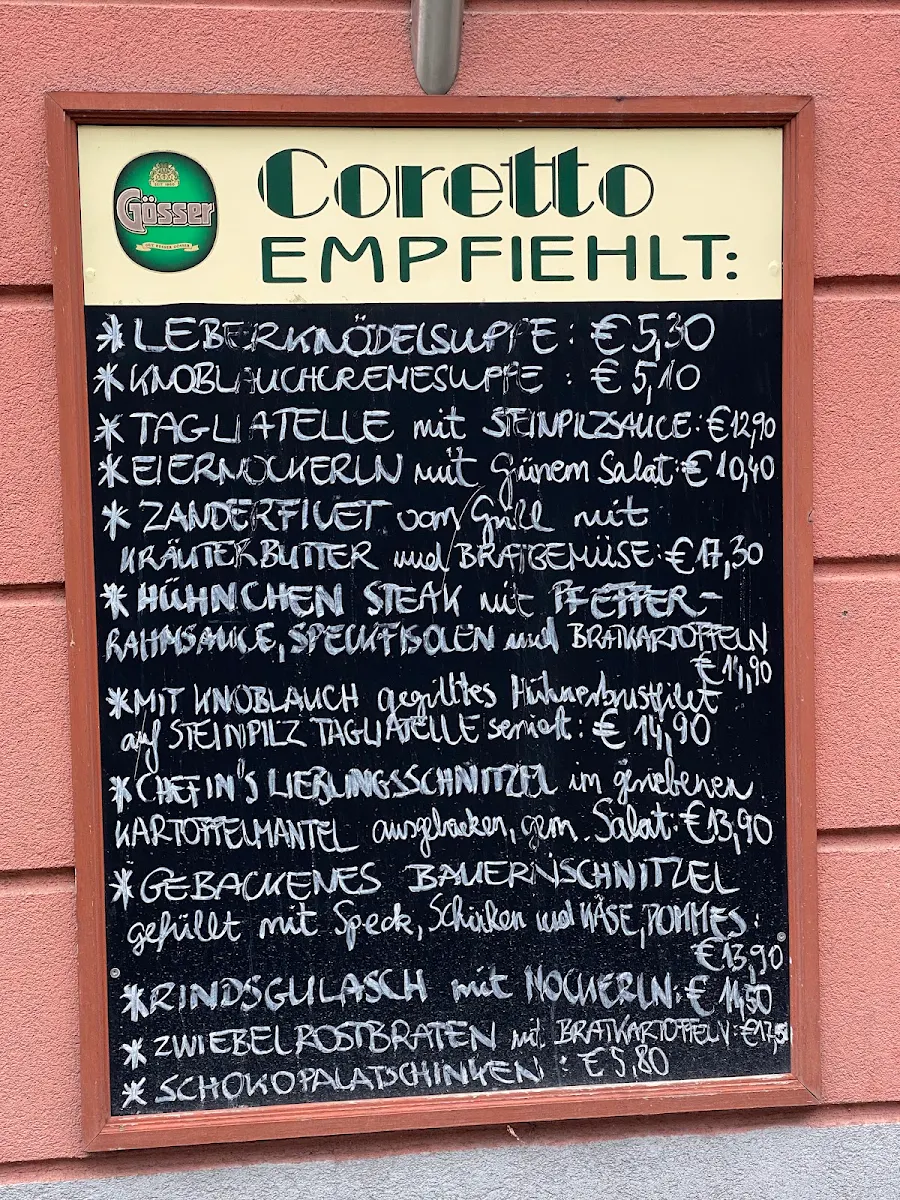 Gösser
Coretto
EMPFIEHLT:
* LEBERKNÖDELSUPPE : € 5,30
* KNOBLAUCHCREMESUPPE : € 5,10
* TAGLIATELLE mit STEINPILZSAUCE: € 12,90
* EIERNOCKERLN mit grünem Salat: € 10,40
* ZANDERFILET vom Grill mit
KRÄUTERBUTTER und BRATGEMÜSE: € 17,30
* HÜHNCHEN STEAK mit PFEFFER-
RAHMSAUCE, SPECKFISOLEN und BRATKARTOFFELN
€ 14,90
* MIT KNOBLAUCH gegrilltes Hühnerbrustfilet
auf STEINPILZ TAGLIATELLE serviert: € 14,90
* CHEFIN'S LIEBLINGSSCHNITZEL im geriebenen
KARTOFFELMANTEL ausgebacken, gem. Salat: € 13,90
* GEBACKENES BAUERNSCHNITZEL
gefüllt mit Speck, Schinken und KÄSE, POMMES:
€ 13,90
* RINDSGULASCH mit NOCKERLN: € 11,50
* ZWIEBELROSTBRATEN mit BRATKARTOFFELN: €
* SCHOKOPALATSCHINKEN : € 5,80